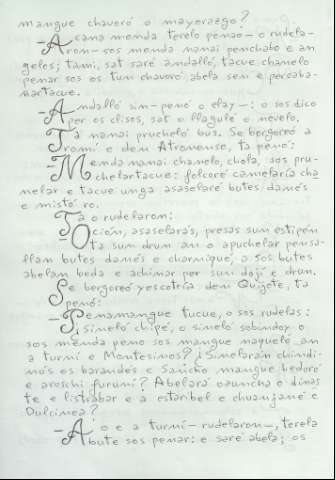 mangue chavoró o mayorazgo?
-Acana menda terelo penao- o rudela-
rom- sos menda nanai penchabo e an
geles; tami, sat saré andalló, tacue chanelo
penar sos os tun chavoró abela sen e parcaba-
rartacue.
-Andalló sin-penó o elay-: o sos dico
per os clisos, sat o llagulé o novelo.
Ta nanai prucheló bus. Se bergoreó a
Tromí e den Atronense, ta penó:
-Menda nanai chanelo, chola, sos pru-
chelartacue: folcoré camelaría cha
nelar e tacue unga asaselaré butes damés
e mistó ro.
Ta o rudelarom:
-Oción, asaselarás, presas sum estipén
ta sum drum an o apuchelar pensa-
llam butes damés e charnique, a sos butes
abelam beda e achimar per sun dají e drun.
Se bergoreó yescotría den Quijote, ta
penó:
-Penamangue tucue, o sos rudelas:
¿simeló chipé, o simeló sobindoy o
sos menda penó sos mangue naquelé an
a turní e Montesinos? ¿Simelarán chindi-
nós os barandés e Sancho mangue bedoré
e aroschi furuní? ¿Abelará oaunchó o dinas
te e listrabar e a estaribel e chuanjané e
Dulcinea?
-Ao e a turní- rudelaron-, terela
bute sos penar: e saré abela; os